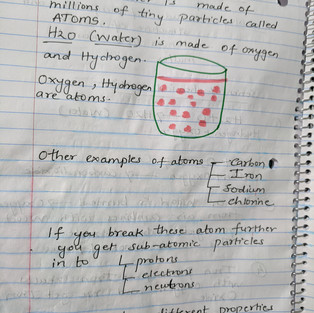 is made of
millions of tiny particles called
ATOMS.
H2O (Water) is made of oxygen
and Hydrogen.
Oxygen, Hydrogen
are atoms.
Other examples of atoms
Carbon
Iron
Sodium
chlorine
If you break these atom further
you get sub-atomic particles
in to
protons
electrons
neutrons
different properties